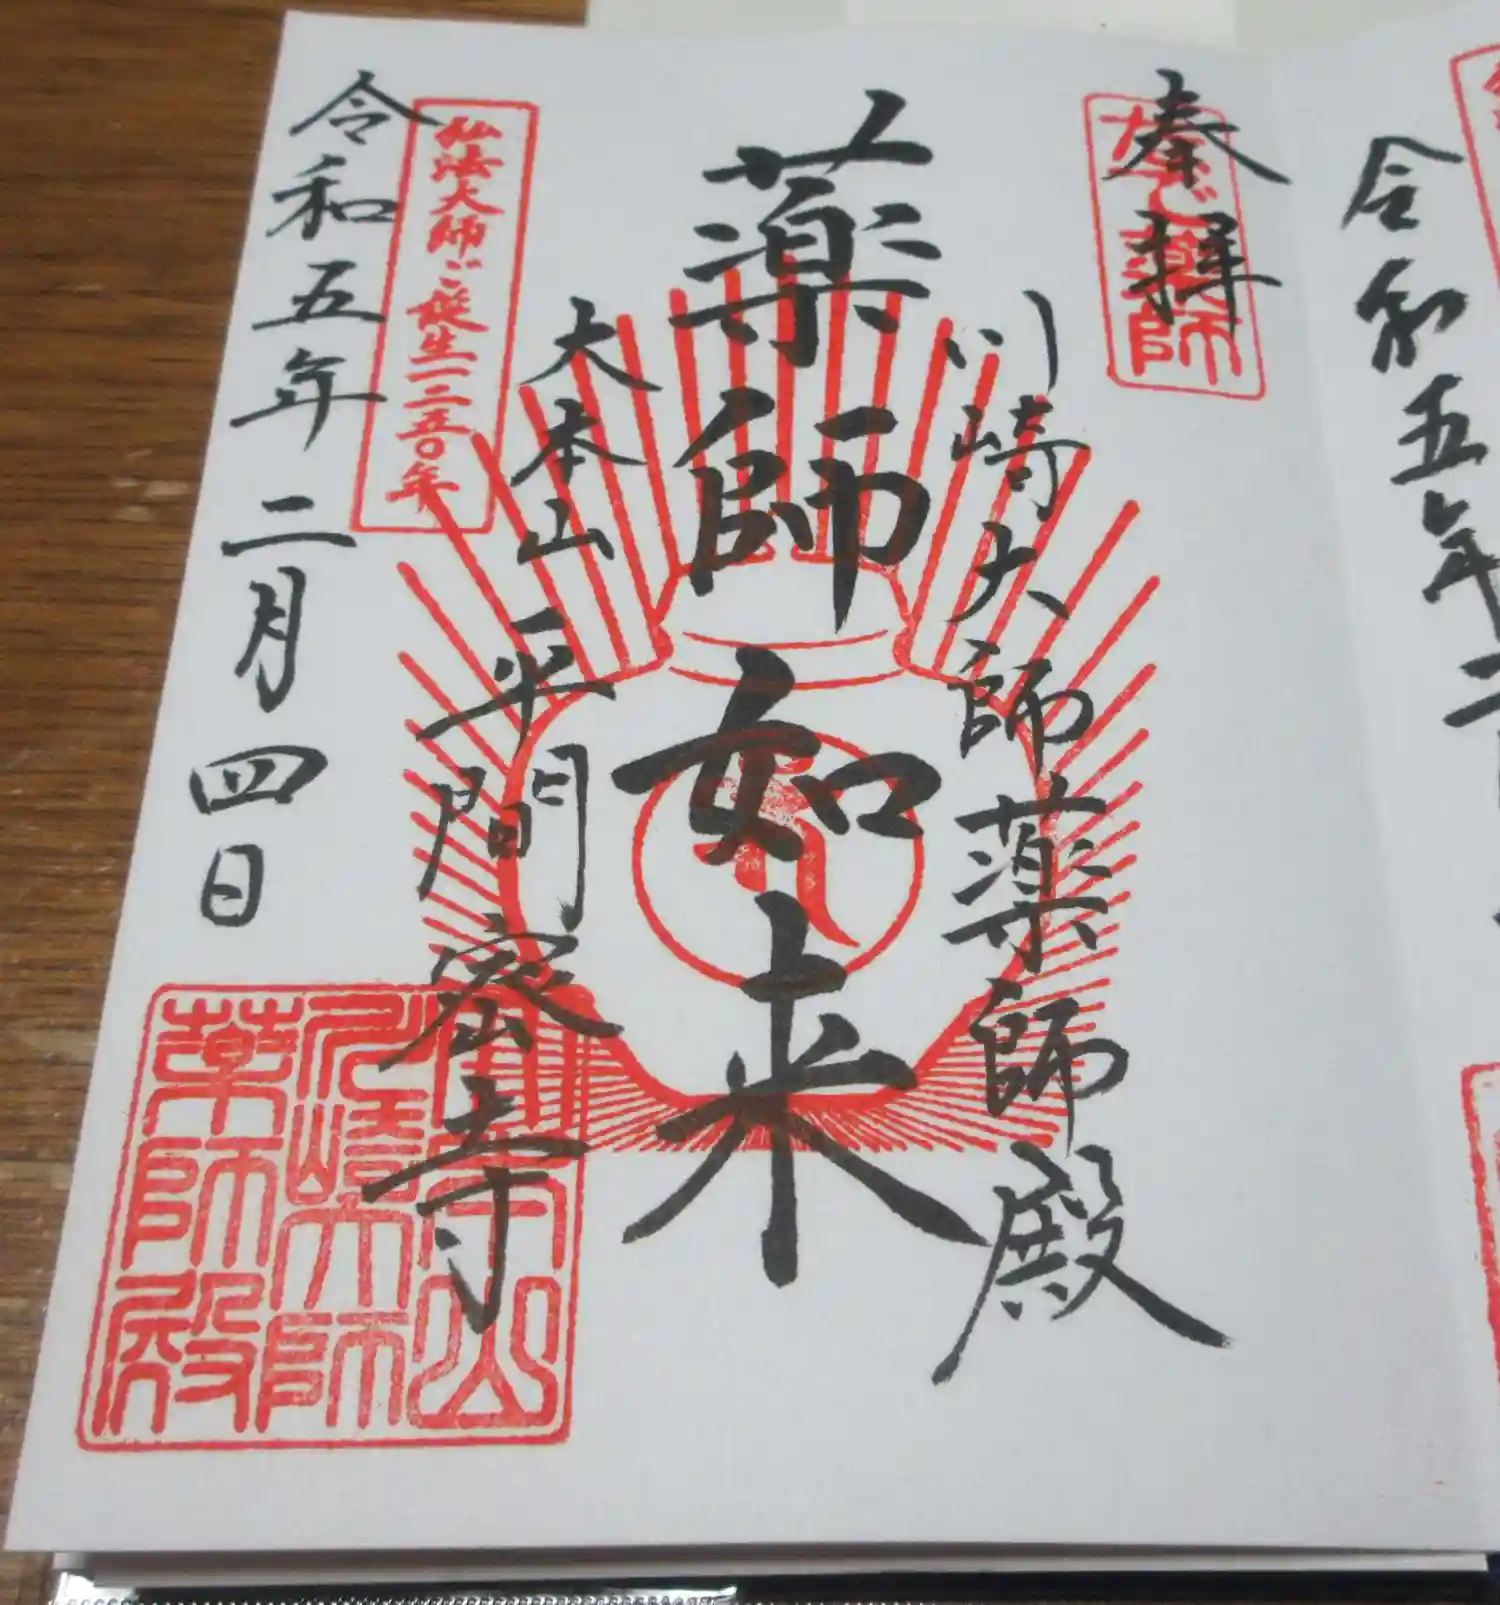 令和五年二
奉拝
なで薬師
川崎大師薬師殿
薬師如来
大本山平間密寺
弘法大師ご誕生一二五〇年
令和五年二月四日
金剛山
川崎大師
薬師殿